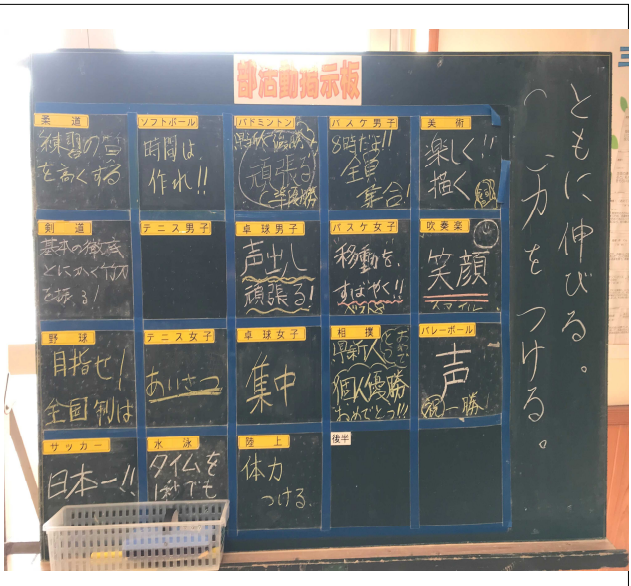 部活動掲示板
柔道
練習の質
を高くする
ソフトボール
時間は、
作れ!!
バドミントン
頑張る
準優勝
バスケ男子
8時だよ!!
全員
集合!
美術
楽しく!!
描く
剣道
基本の徹底
とにかく竹刀
を振る!
テニス男子
卓球男子
声出し
頑張る!
バスケ女子
移動を、
すばやく!!
吹奏楽
笑顔
スマイル
野球
目指せ!
全国制は
テニス女子
あいさつ
卓球女子
集中
相撲
県新人
おめでとう
個人優勝
おめでとう!!!
バレーボール
声
祝一勝!
サッカー
日本一!!
水泳
タイムを
1秒でも
陸上
体力
つける。
後半
ともに伸びる。
力を つける。